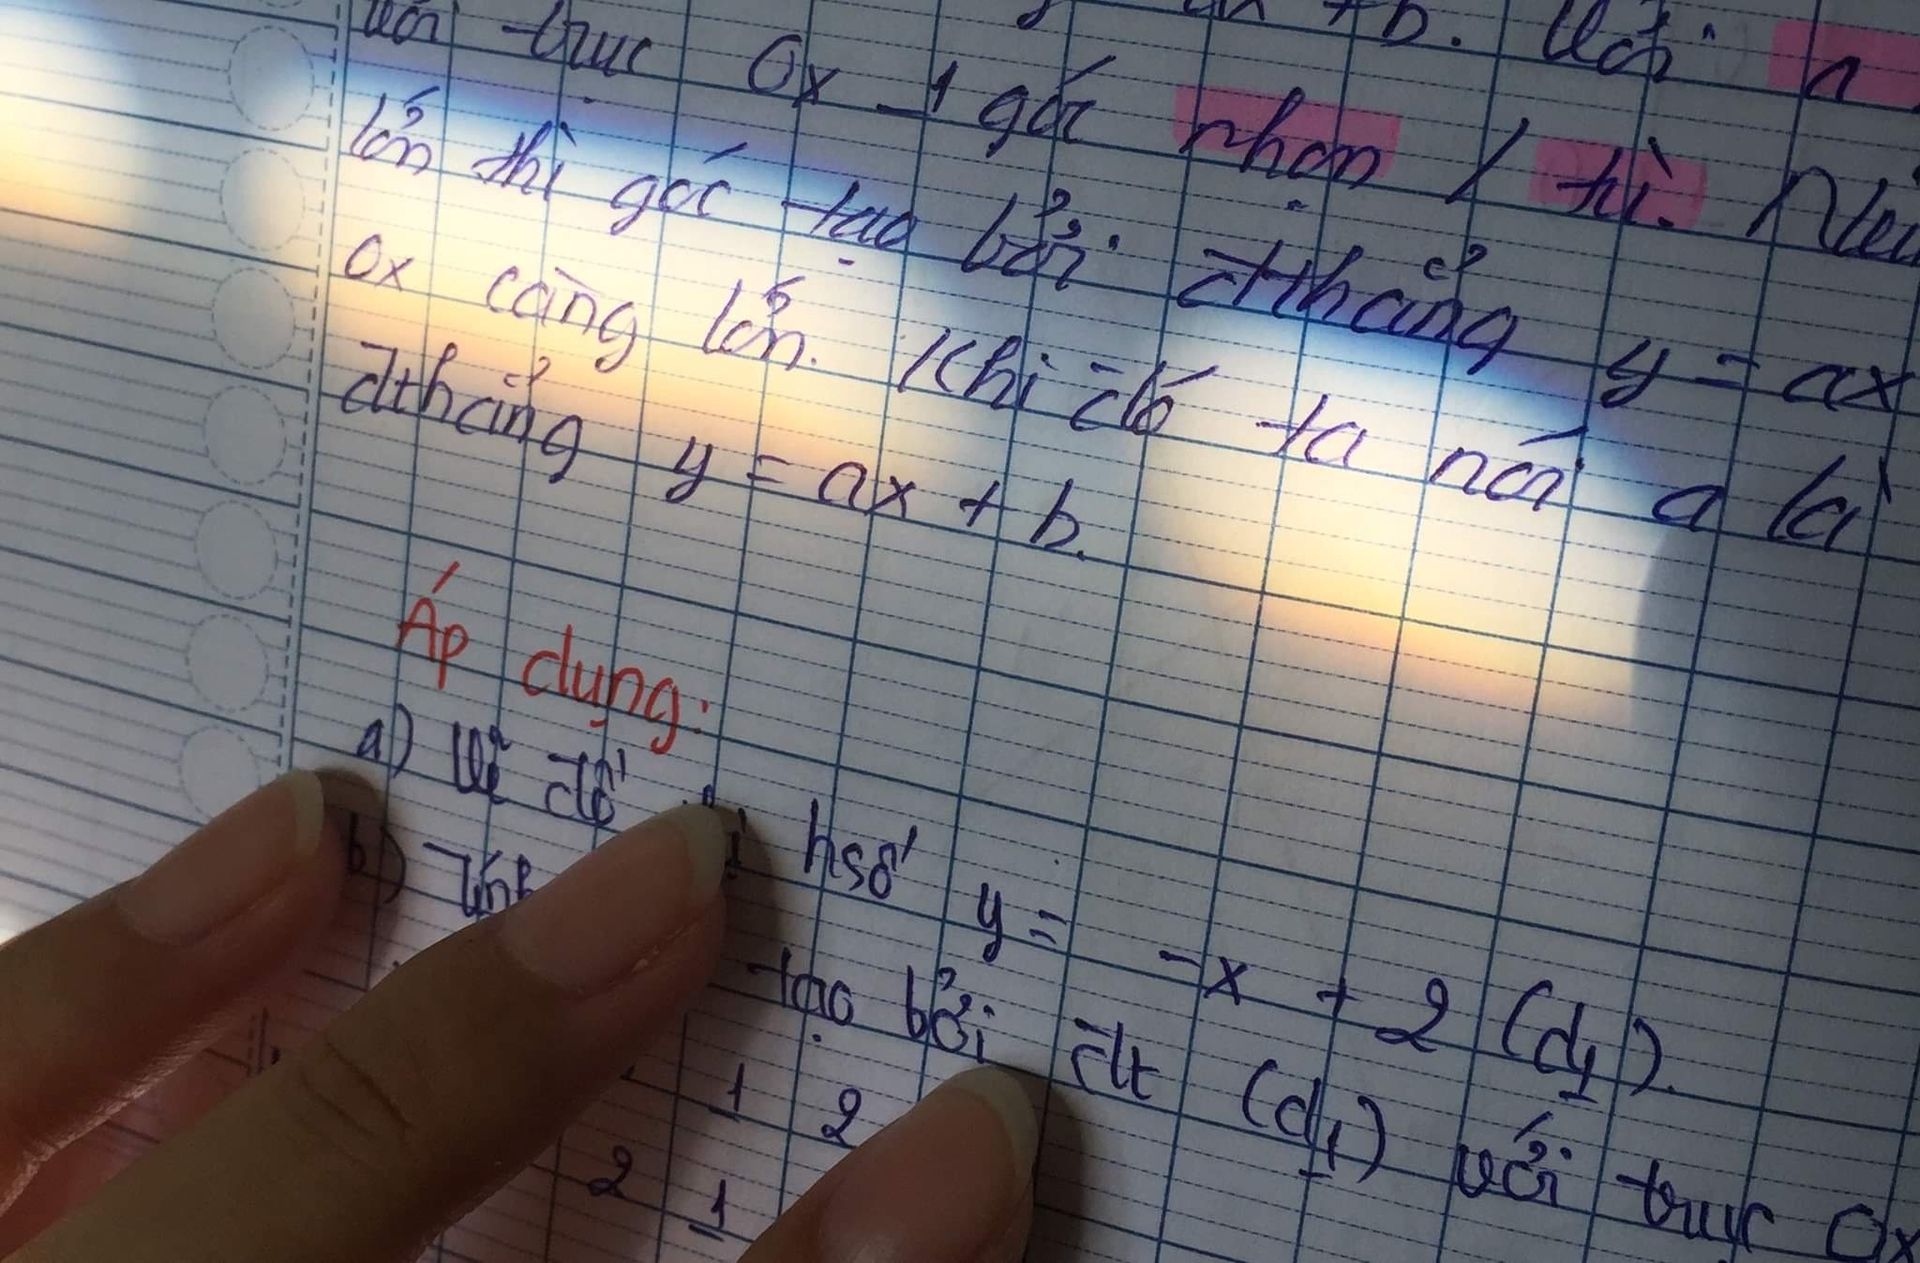 + b. Với a
với trục Ox 1 góc nhọn / tù. Nếu
lớn thì góc tạo bởi đthẳng y = ax
Ox càng lớn. Khi đó ta nói a là
đthẳng y = ax + b.
Áp dụng:
a) Vẽ đồ hsố y = -x + 2 (d1).
b) Tính tạo bởi đt (d1) với trục Ox
1 2
2 1